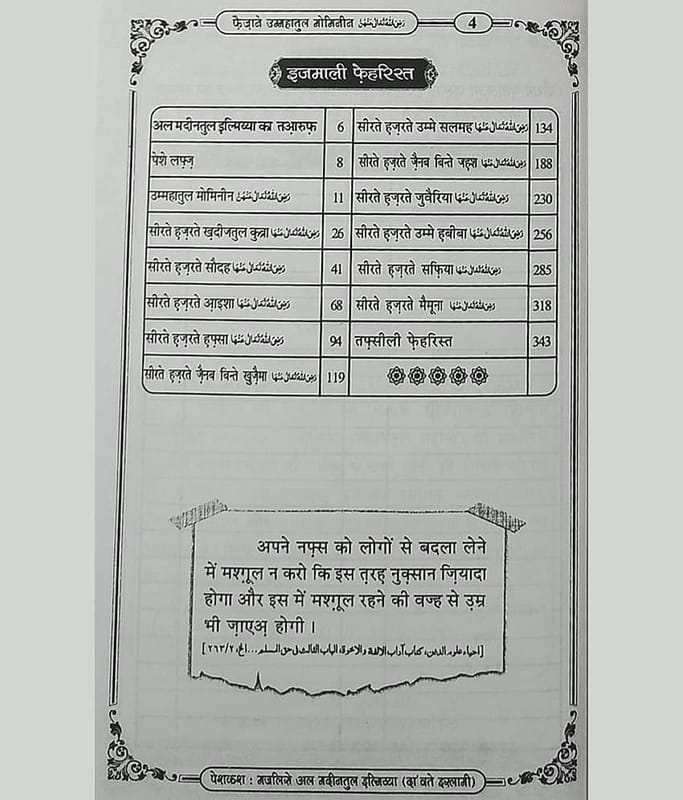 फैज़ाने उम्महातुल मोमिनीन رَضِیَ اللہُ تَعَالٰی عَنْہُنَّ 4
इजमाली फ़ेहरिस्त
अल मदीनतुल इल्मिय्या का तआरुफ़ 6 सीरते हज़रते उम्मे सलमह رَضِیَ اللہُ تَعَالٰی عَنْہَا 134
पेशे लफ़्ज़ 8 सीरते हज़रते ज़ैनब बिन्ते जह़श رَضِیَ اللہُ تَعَالٰی عَنْہَا 188
उम्महातुल मोमिनीन رَضِیَ اللہُ تَعَالٰی عَنْہُنَّ 11 सीरते हज़रते जुवैरिया رَضِیَ اللہُ تَعَالٰی عَنْہَا 230
सीरते हज़रते ख़दीजतुल कुब्रा رَضِیَ اللہُ تَعَالٰی عَنْہَا 26 सीरते हज़रते उम्मे हबीबा رَضِیَ اللہُ تَعَالٰی عَنْہَا 256
सीरते हज़रते सौदह رَضِیَ اللہُ تَعَالٰی عَنْہَا 41 सीरते हज़रते सफ़िया رَضِیَ اللہُ تَعَالٰی عَنْہَا 285
सीरते हज़रते आ़इशा رَضِیَ اللہُ تَعَالٰی عَنْہَا 68 सीरते हज़रते मैमूना رَضِیَ اللہُ تَعَالٰی عَنْہَا 318
सीरते हज़रते ह़फ़्सा رَضِیَ اللہُ تَعَالٰی عَنْہَا 94 तफ़्सीली फ़ेहरिस्त 343
सीरते हज़रते ज़ैनब बिन्ते खुज़ैमा رَضِیَ اللہُ تَعَالٰی عَنْہَا 119
अपने नफ़्स को लोगों से बदला लेने
में मश्ग़ूल न करो कि इस त़रह़ नुक़्सान ज़ियादा
होगा और इस में मश्ग़ूल रहने की वज्ह से उ़म्र
भी ज़ाएअ़ होगी ।
[احیاء علوم الدین، کتاب آداب الالفة والاخوة، الباب الثالث فی حق المسلم...الخ، ٢/٢٦٣]
पेशकश : मजलिसे अल मदीनतुल इल्मिय्या (दा'वते इस्लामी)